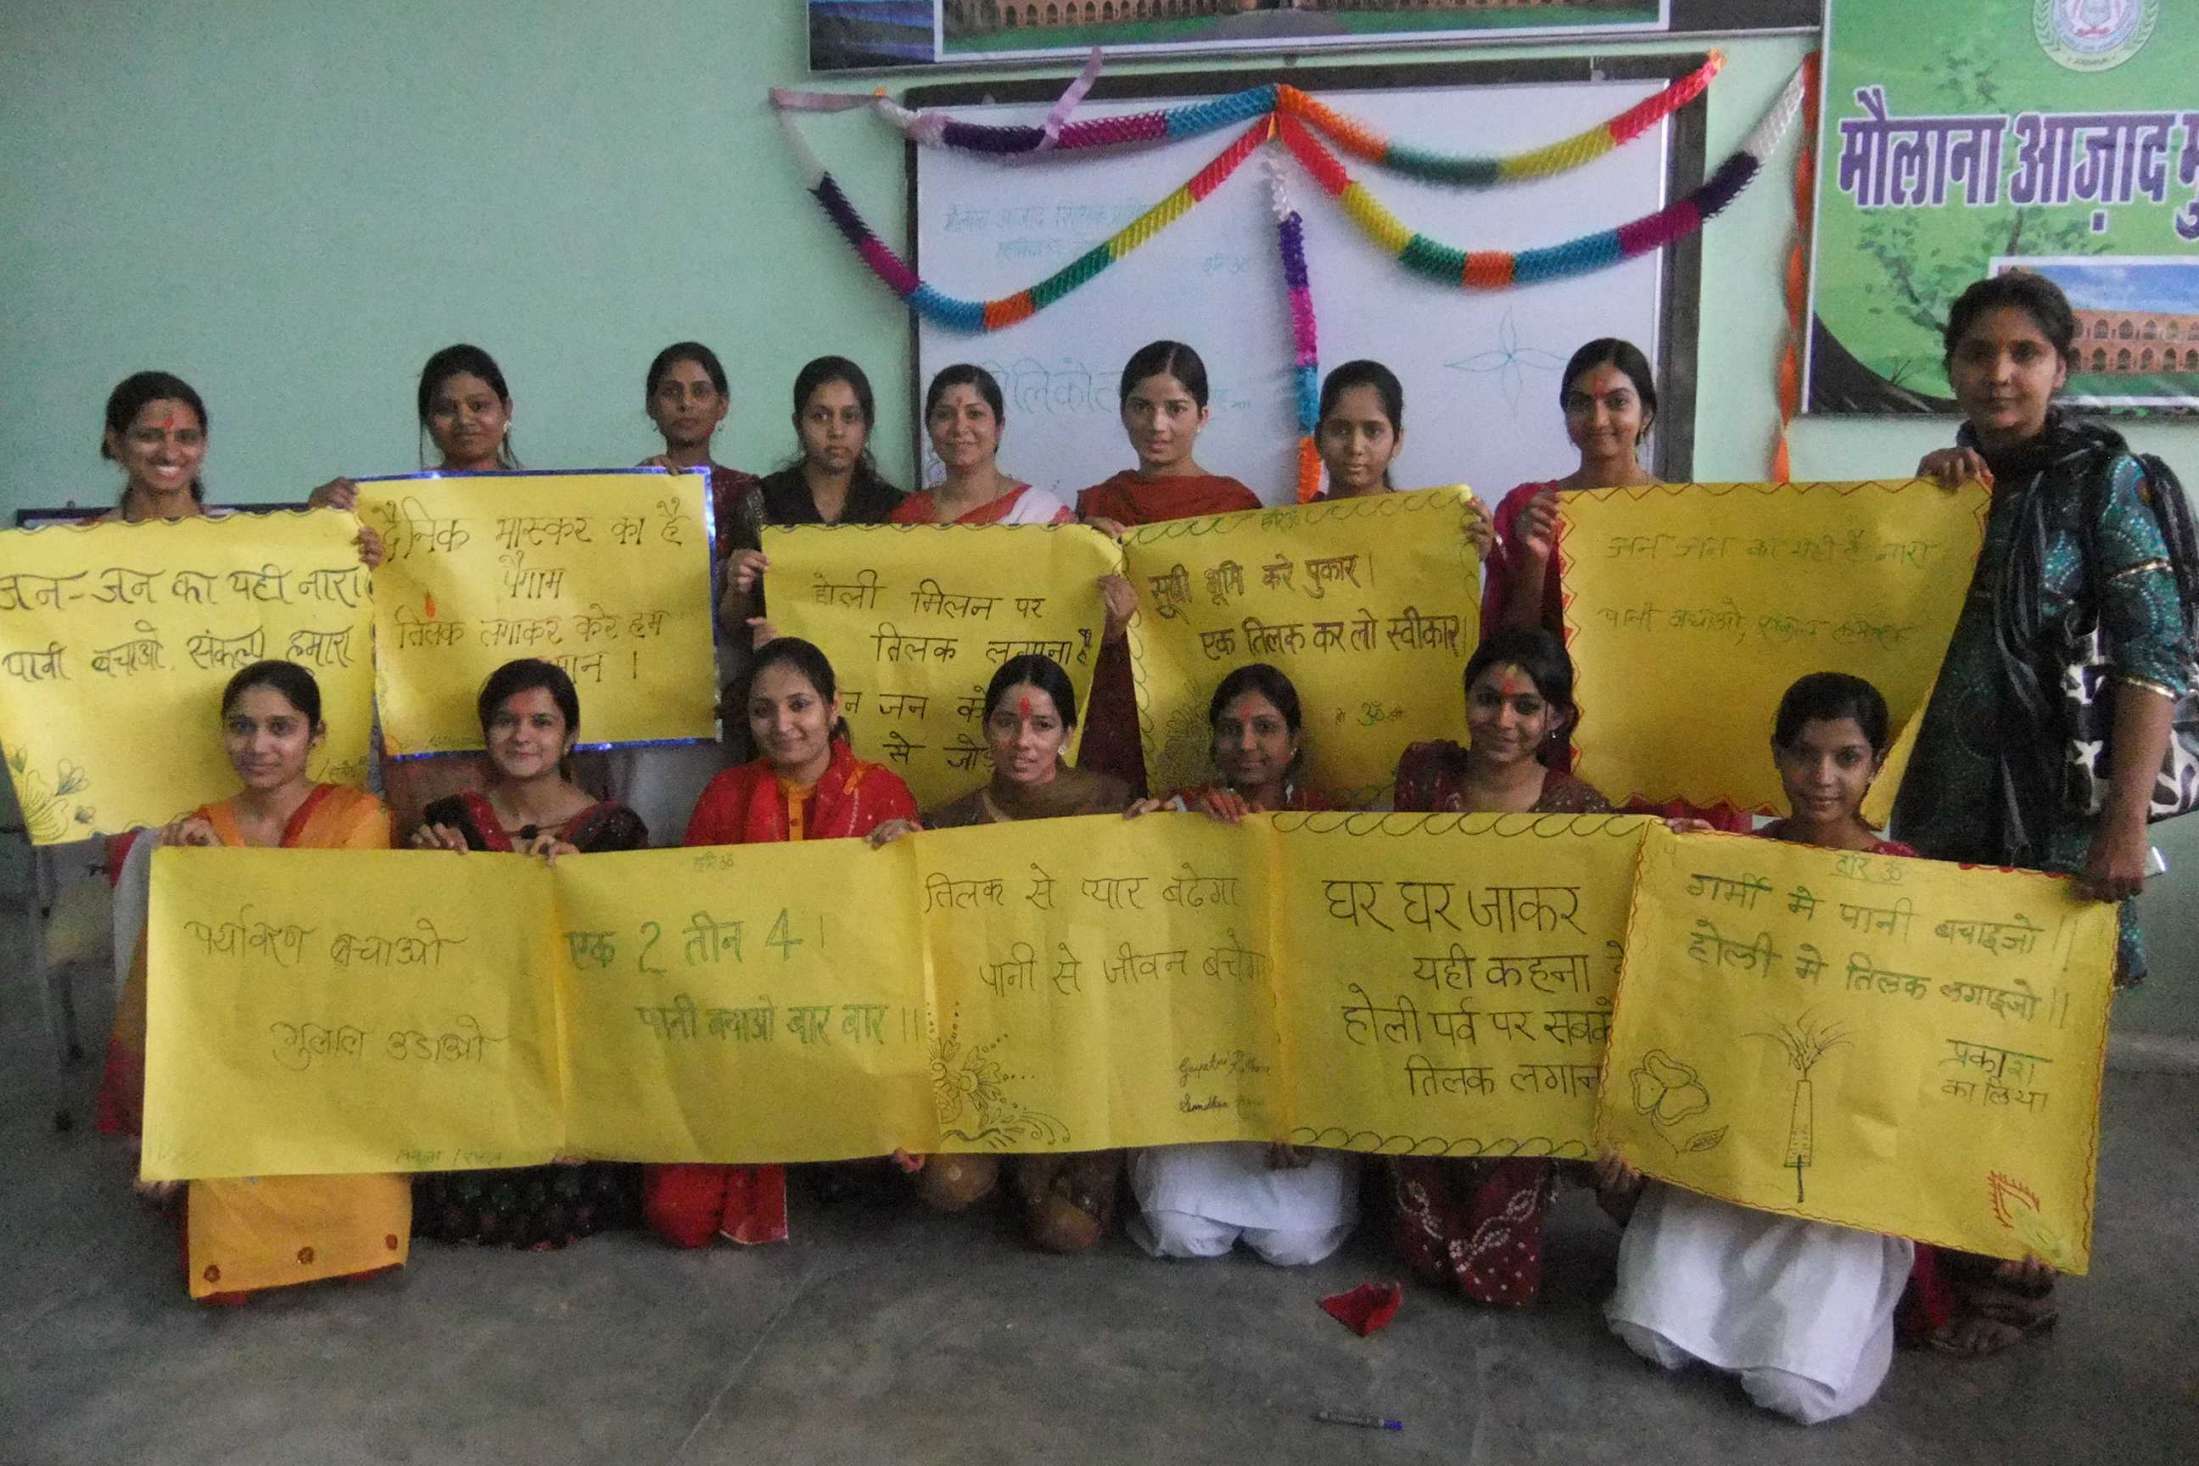 मौलाना आज़ाद
मौलाना आज़ाद
हरि ॐ
जन-जन का यही नारा
पानी बचाओ, संकल्प हमारा
दैनिक भास्कर का है
पैगाम
तिलक लगाकर करे हम
होली मिलन पर
तिलक लगाना है
जन को
से जोड़
हरि ॐ
सूखी भूमि करे पुकार।
एक तिलक कर लो स्वीकार।
ॐ
जन जन का यही है नारा
पानी बचाओ, संकल्प हमारा
पर्यावरण बचाओ
गुलाल उडाओ
हरि ॐ
एक 2 तीन 4।
पानी बचाओ बार बार॥
तिलक से प्यार बढेगा
पानी से जीवन बचेगा
Gayatri
घर घर जाकर
यही कहना
होली पर्व पर सबके
तिलक लगाना
हरि ॐ
गर्मी मे पानी बचाइजो॥
होली मे तिलक लगाइजो॥
प्रकाश
कालिया